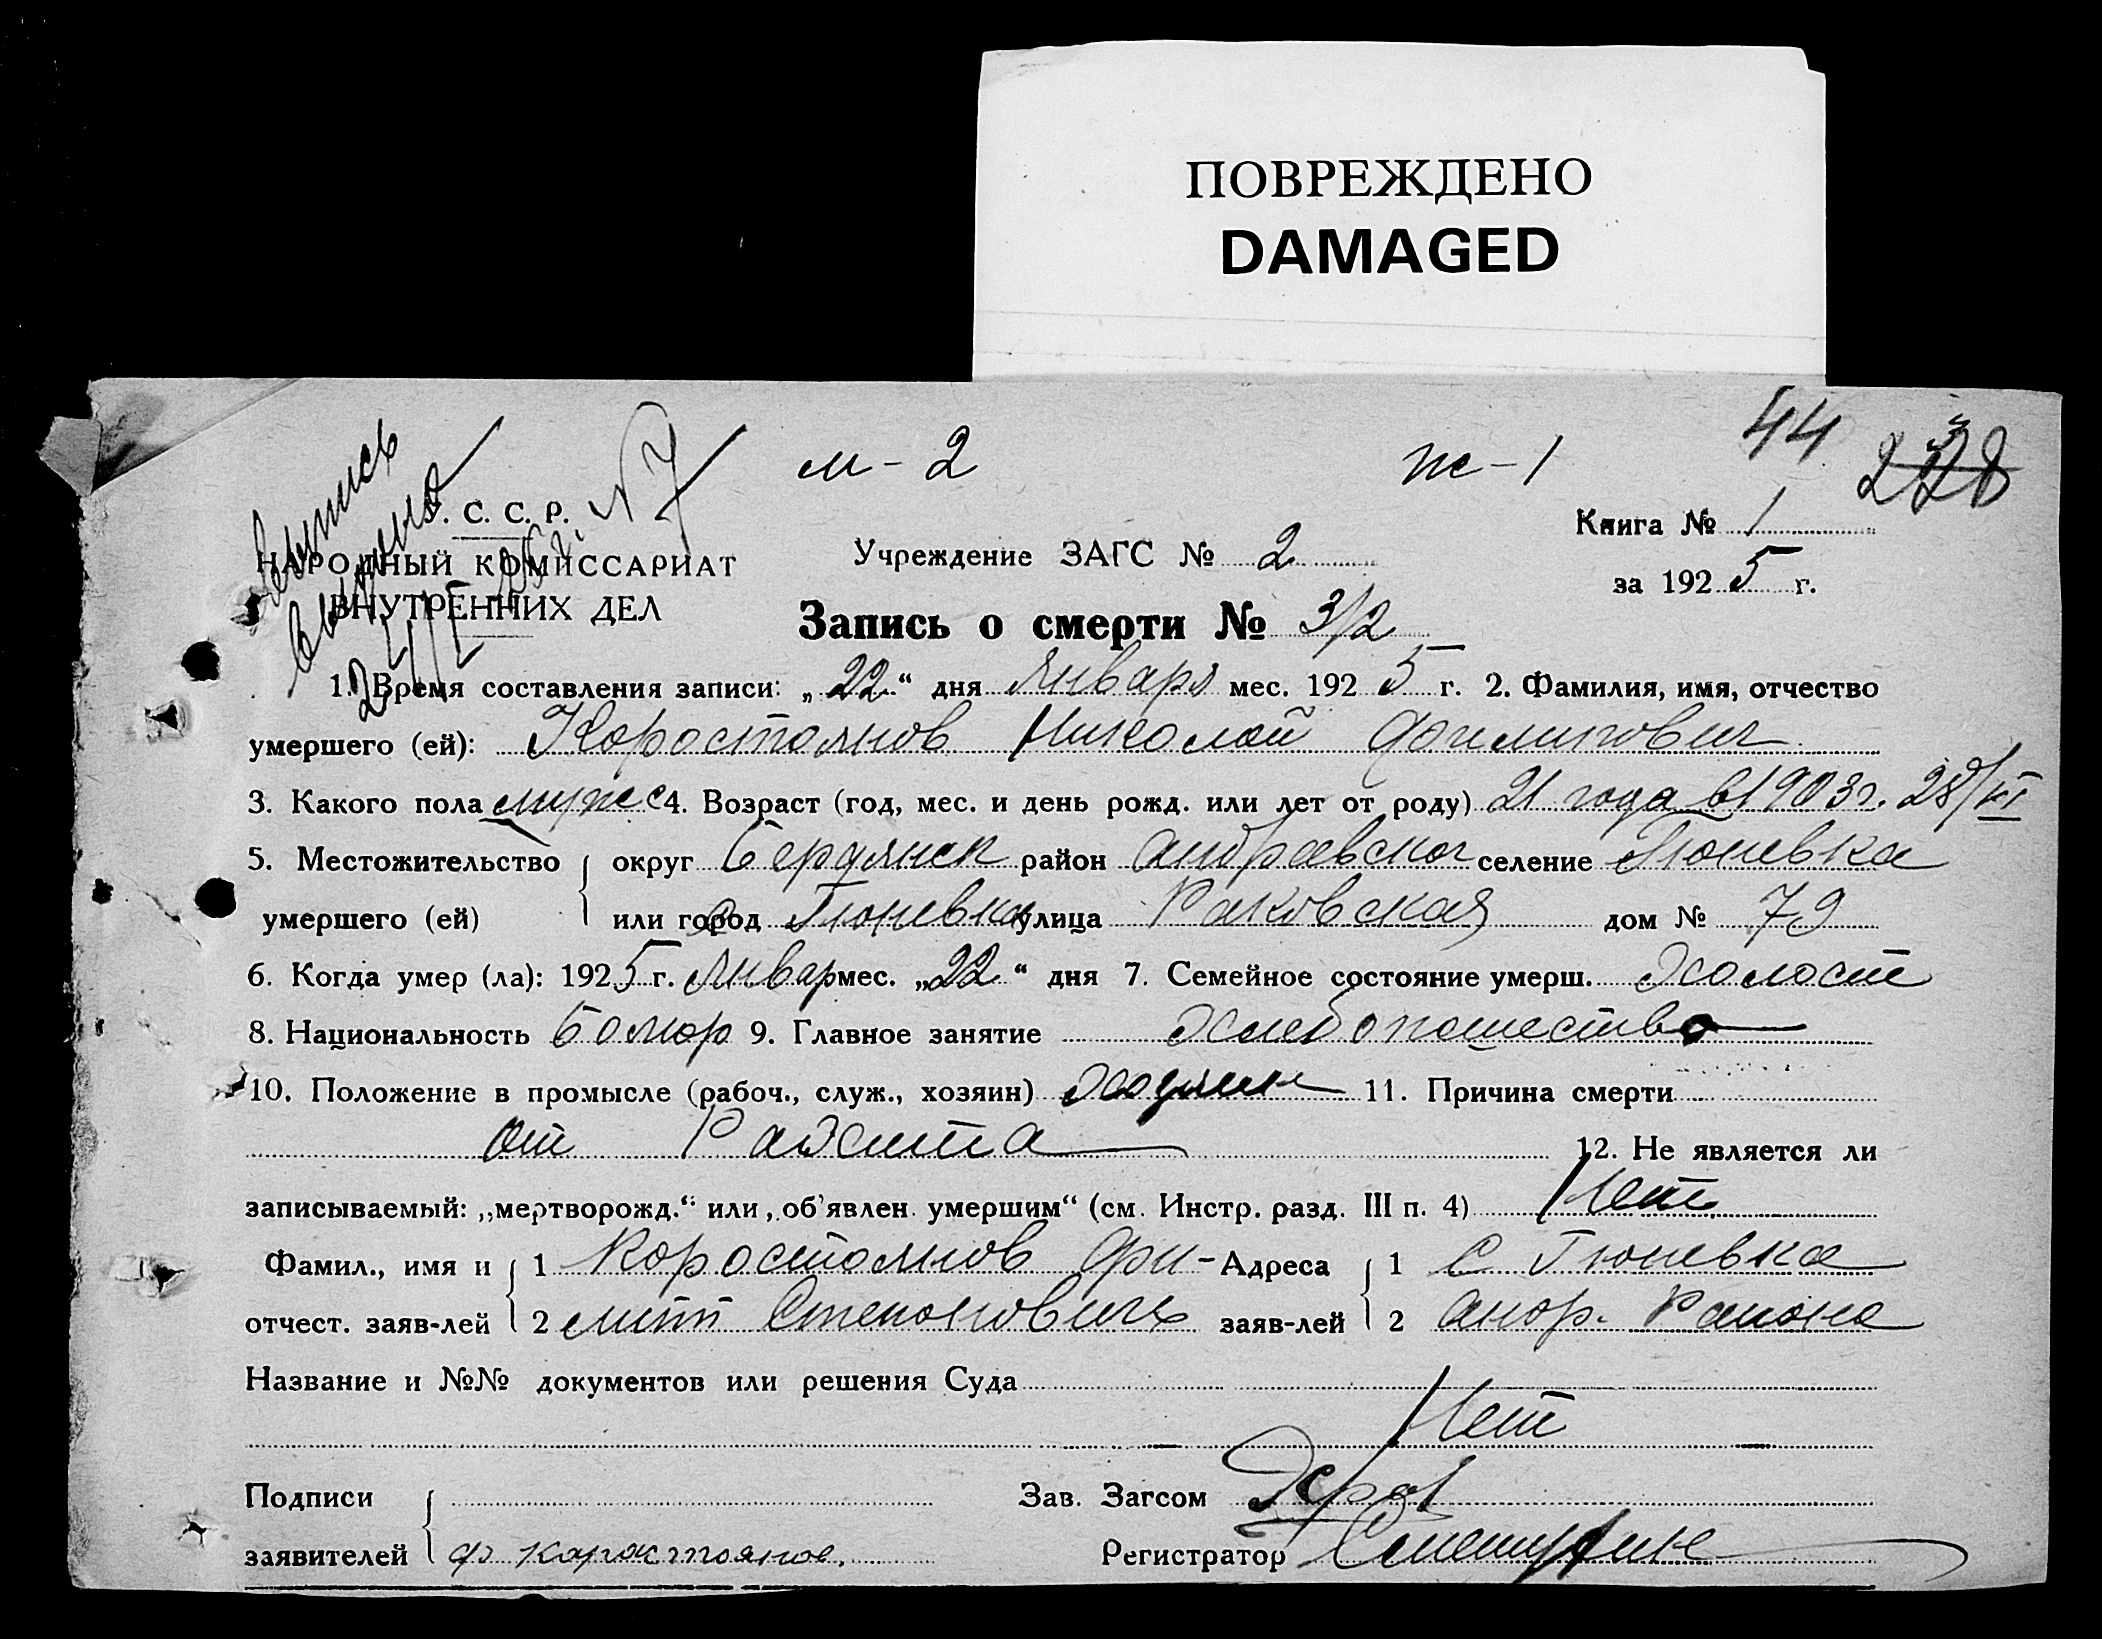 ПОВРЕЖДЕНО
DAMAGED
44
м - 2
ж - 1
328
. С. С. Р.
№ 7
Книга № 1
НАРОДНЫЙ КОМИССАРИАТ
Учреждение ЗАГС № 2
за 1925 г.
ВНУТРЕННИХ ДЕЛ
Запись о смерти № 3/2
1. Время составления записи: „22“ дня Января мес. 1925 г. 2. Фамилия, имя, отчество
умершего (ей): Коростоянов Николай Филипович
3. Какого пола мужс 4. Возраст (год, мес. и день рожд. или лет от роду) 21 года в 1903 г. 28/XI
5. Местожительство округ Бердянск район Андревског селение Тюневка
умершего (ей) или город с Тюневка улица Раковская дом № 79
6. Когда умер (ла): 1925 г. Январ мес. „22“ дня 7. Семейное состояние умерш. Холост
8. Национальность Болгор 9. Главное занятие Хлебопашество
10. Положение в промысле (рабоч., служ., хозяин) Хозяин 11. Причина смерти
от 12. Не является ли
записываемый: „мертворожд.“ или „об'явлен умершим“ (см. Инстр. разд. III п. 4) Нет
Фамил., имя и 1 Коростоянов Фи- Адреса 1 с Тюневка
отчест. заяв-лей 2 липп Степонович заяв-лей 2 Андр. Района
Название и №№ документов или решения Суда
Нет
Подписи Зав. Загсом
заявителей Ф Каростоянов. Регистратор